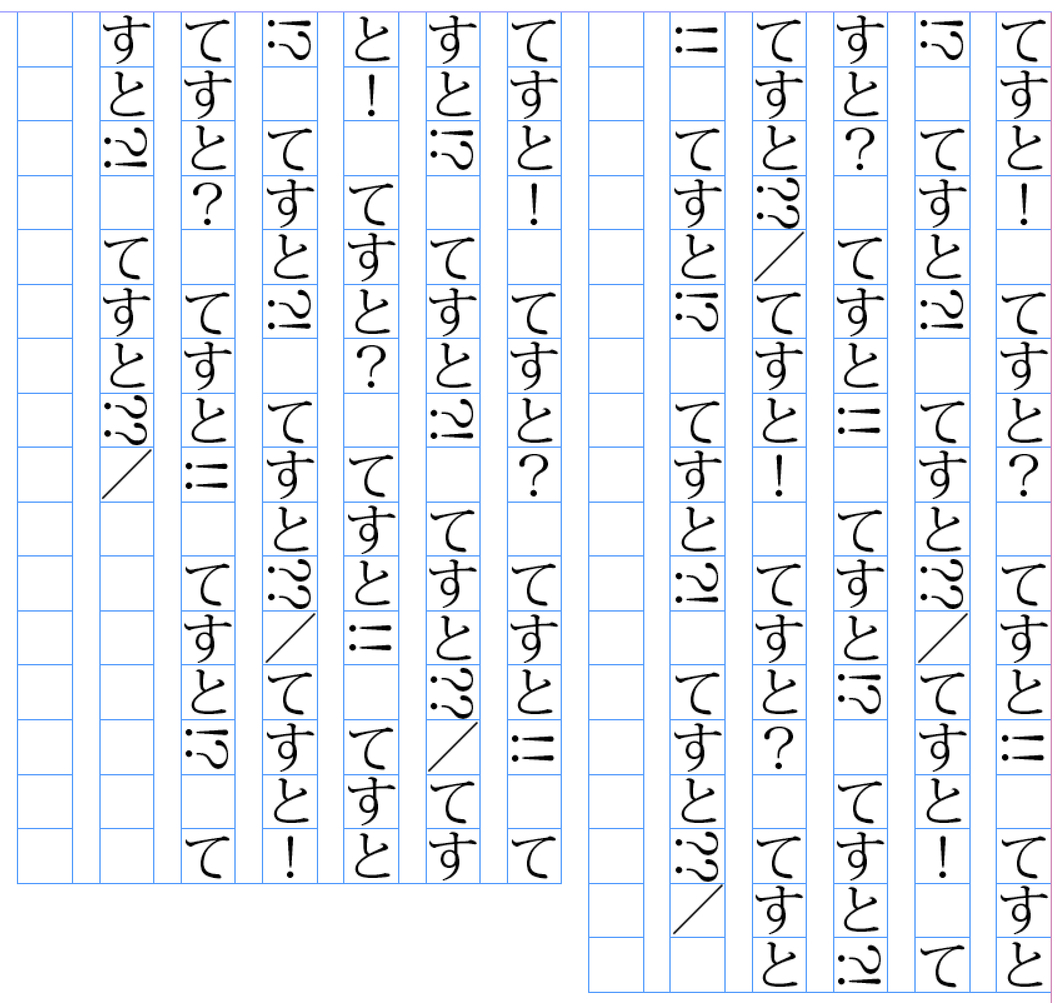 てすと！　てすと？　てすと‼　てすと
⁉　てすと⁈　てすと⁇／てすと！　て
すと？　てすと‼　てすと⁉　てすと⁈
てすと⁇／てすと！　てすと？　てすと
‼　てすと⁉　てすと⁈　てすと⁇／
てすと！　てすと？　てすと‼　て
すと⁉　てすと⁈　てすと⁇／てす
と！　てすと？　てすと‼　てすと
⁉　てすと⁈　てすと⁇／てすと！
てすと？　てすと‼　てすと⁉　て
すと⁈　てすと⁇／